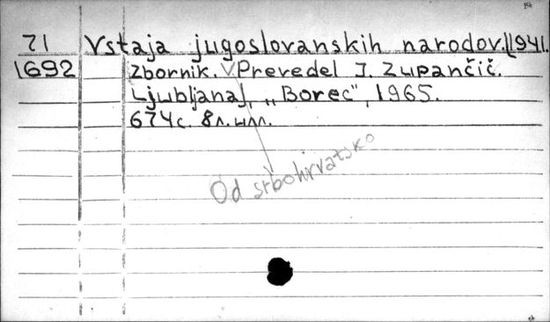 71 Vstaja jugoslovanskih narodov. 1941.
1692 Zbornik. Prevedel J. Zupančič.
Ljubljana, „Borec", 1965.
674с. 8л. илл.
Od srbohrvatsko